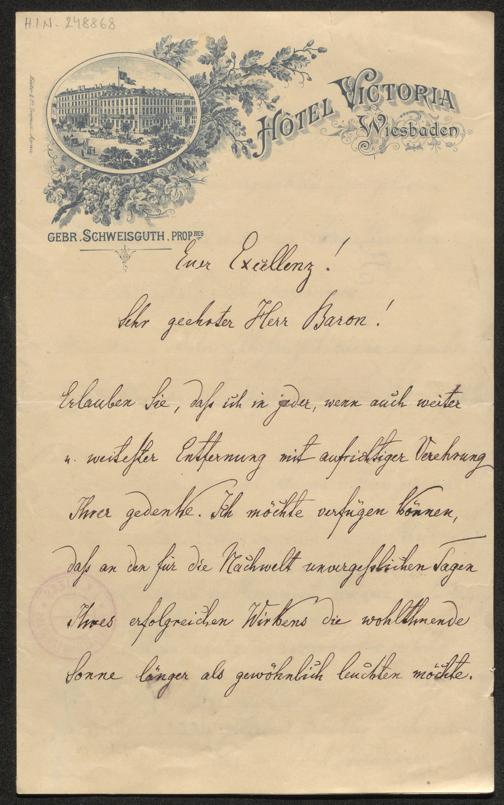 H.I.N. 248868
HÔTEL VICTORIA
Wiesbaden
GEBR. SCHWEISGUTH. PROP.RES
Euer Excellenz!
Sehr geehrter Herr Baron!
Erlauben Sie, daß ich in jeder, wenn auch weiter
u. weitester Entfernung mit aufrichtiger Verehrung
Ihrer gedenke. Ich möchte verfügen können,
daß an den für die Nachwelt unvergeßlichen Tagen
Ihres erfolgreichen Wirkens die wohlthuende
Sonne länger als gewöhnlich leuchten möchte.